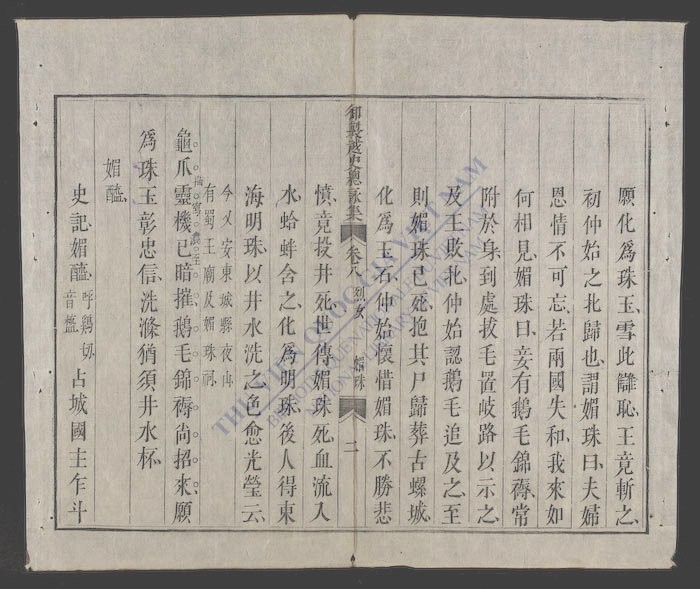 願化爲珠玉雪此讎恥王竟斬之
初仲始之北歸也謂媚珠曰夫婦
恩情不可忘若兩國失和我來如
何相見媚珠曰妾有鵝毛錦褥常
附於身到處拔毛置岐路以示之
及王敗北仲始認鵝毛追及之至
則媚珠已死抱其尸歸葬古螺城
化爲玉石仲始懷惜媚珠不勝悲
御製越史總詠集 卷八 烈女 媚珠 二
憤竟投井死世傳媚珠死血流入
水蛤蚌含之化爲明珠後人得東
海明珠以井水洗之色愈光瑩云
今乂安東城縣夜山
有蜀王廟及媚珠祠
龜爪靈機已暗摧鵝毛錦褥尚招來願
爲珠玉彰忠信洗滌猶須井水杯
媚醯
史記媚醯呼鷄切音醯占城國主乍斗
THƯ VIỆN QUỐC GIA VIỆT NAM
BIBLIOTHÈQUE NATIONALE DU VIETNAM
NATIONAL LIBRARY OF VIETNAM